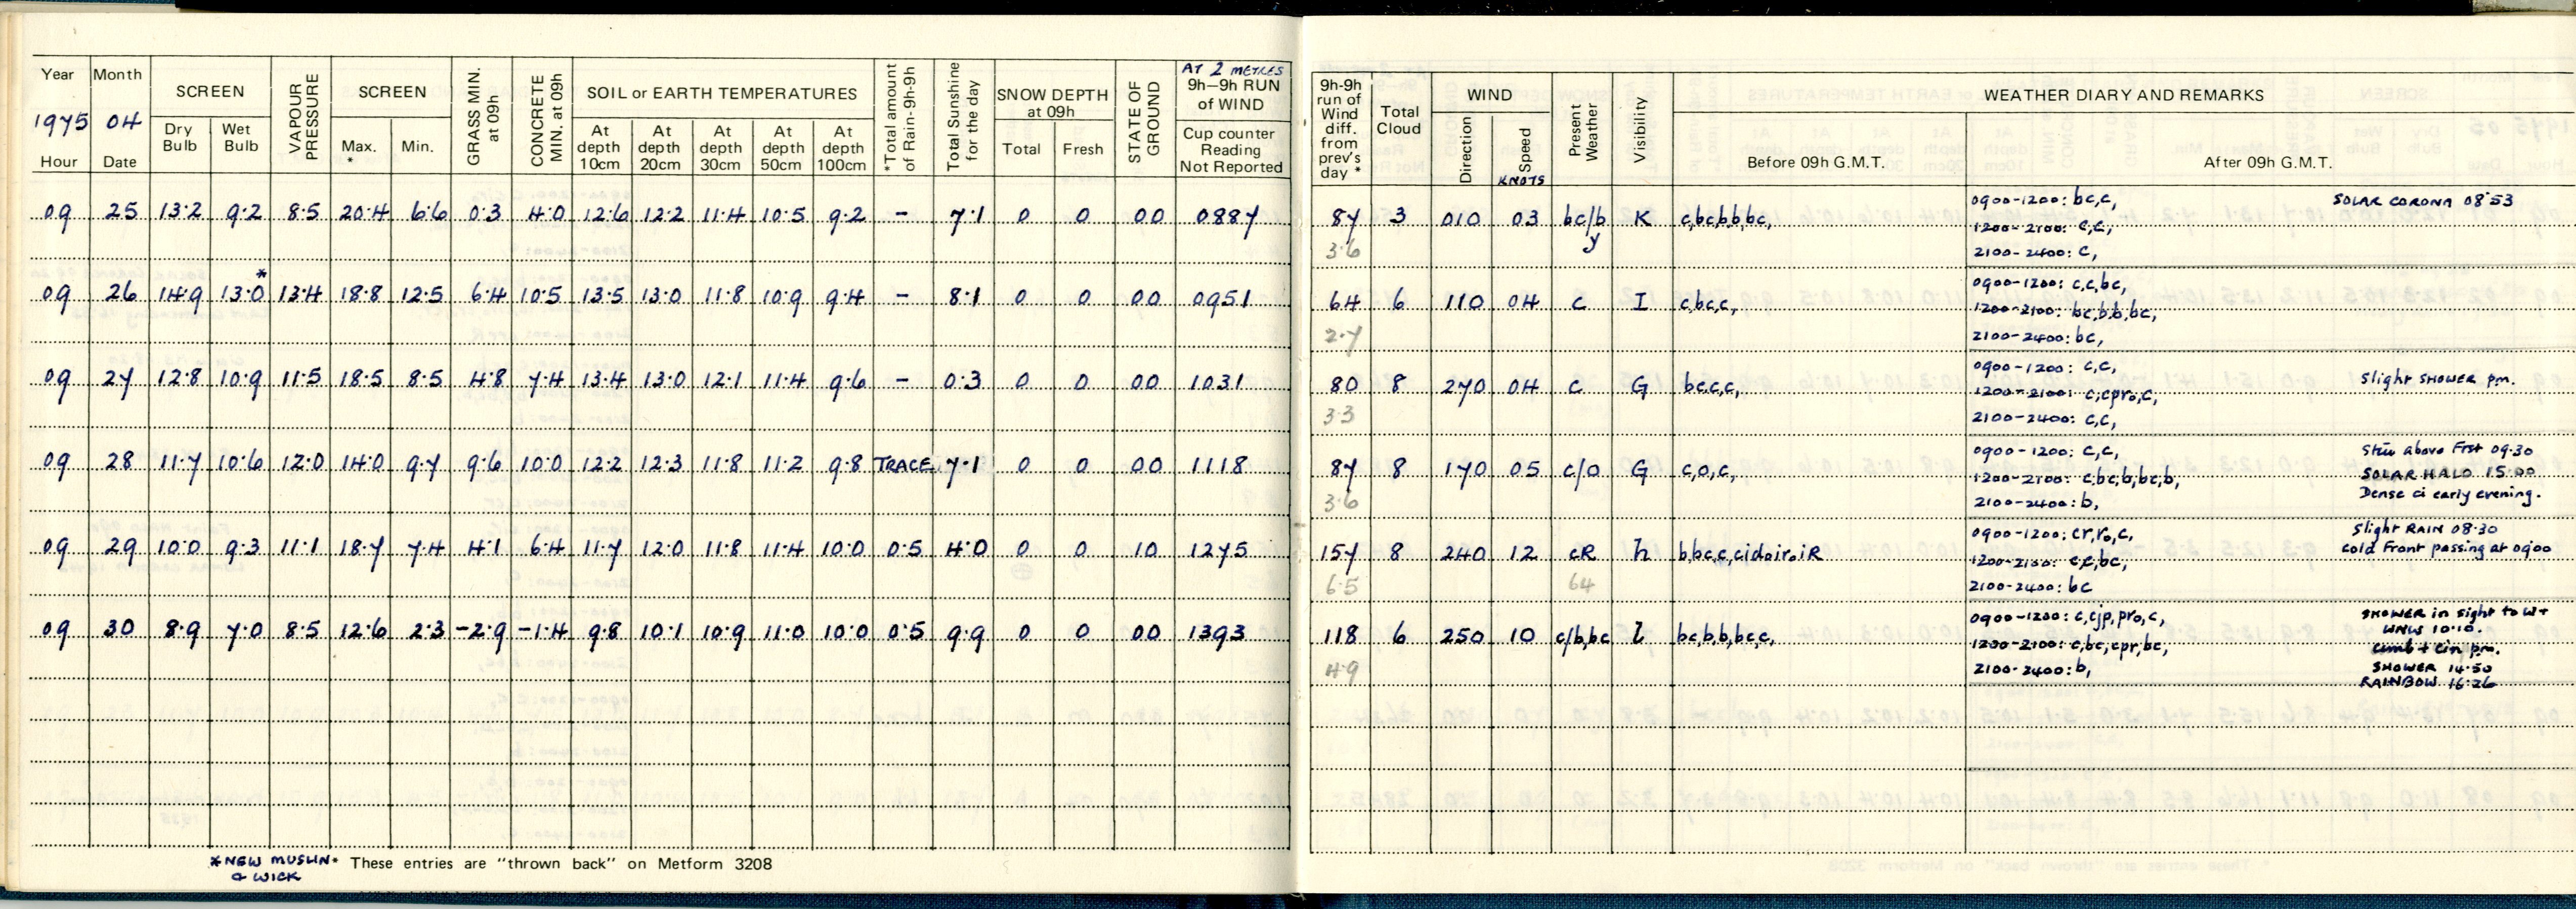 Year Month SCREEN VAPOUR PRESSURE SCREEN GRASS MIN. at 09h CONCRETE MIN. at 09h SOIL or EARTH TEMPERATURES *Total amount of Rain-9h-9h Total Sunshine for the day SNOW DEPTH at 09h STATE OF GROUND AT 2 METRES 9h–9h RUN of WIND
1975 04 Dry Bulb Wet Bulb Max. * Min. At depth 10cm At depth 20cm At depth 30cm At depth 50cm At depth 100cm Total Fresh Cup counter Reading Not Reported
Hour Date
09 25 13.2 9.2 8.5 20.4 6.6 0.3 4.0 12.6 12.2 11.4 10.5 9.2 - 7.1 0 0 00 0887
*
09 26 14.9 13.0 13.4 18.8 12.5 6.4 10.5 13.5 13.0 11.8 10.9 9.4 - 8.1 0 0 00 0951
09 27 12.8 10.9 11.5 18.5 8.5 4.8 7.4 13.4 13.0 12.1 11.4 9.6 - 0.3 0 0 00 1031
09 28 11.7 10.6 12.0 14.0 9.7 9.6 10.0 12.2 12.3 11.8 11.2 9.8 TRACE 7.1 0 0 00 1118
09 29 10.0 9.3 11.1 18.7 7.4 4.1 6.4 11.7 12.0 11.8 11.4 10.0 0.5 4.0 0 0 10 1275
09 30 8.9 7.0 8.5 12.6 2.3 -2.9 -1.4 9.8 10.1 10.9 11.0 10.0 0.5 9.9 0 0 00 1393
*NEW MUSLIN & WICK
* These entries are "thrown back" on Metform 3208
9h-9h run of Wind diff. from prev's day * Total Cloud WIND Present Weather Visibility WEATHER DIARY AND REMARKS
Direction Speed KNOTS Before 09h G.M.T. After 09h G.M.T.
87 3 010 03 bc/b y K c,bc,b,b,bc, 0900-1200: bc,c, SOLAR CORONA 08.53
3.6 1200-2100: c,c,
2100-2400: c,
64 6 110 04 c I c,bc,c, 0900-1200: c,c,bc,
2.7 1200-2100: bc,b,b,bc,
2100-2400: bc,
80 8 270 04 c G bc,c,c, 0900-1200: c,c, Slight SHOWER pm.
3.3 1200-2100: c,cpro,c,
2100-2400: c,c,
87 8 170 05 c/o G c,o,c, 0900-1200: c,c, above 09.30
3.6 1200-2100: c,bc,b,bc,b, SOLAR HALO 15.00
2100-2400: b, Dense ci early evening.
157 8 240 12 cR h b,bc,c,cidoiroiR 0900-1200: cr,ro,c, Slight RAIN 08.30
6.5 64 1200-2100: c,c,bc, Cold Front passing at 0900
2100-2400: bc
118 6 250 10 c/b,bc bc,b,b,bc,c, 0900-1200: c,cjp,pro,c, SHOWER in sight to W+ WNW 10.10.
4.9 1200-2100: c,bc,cpr,bc, cumb + cin pm.
2100-2400: b, SHOWER 14.50
RAINBOW 16.26